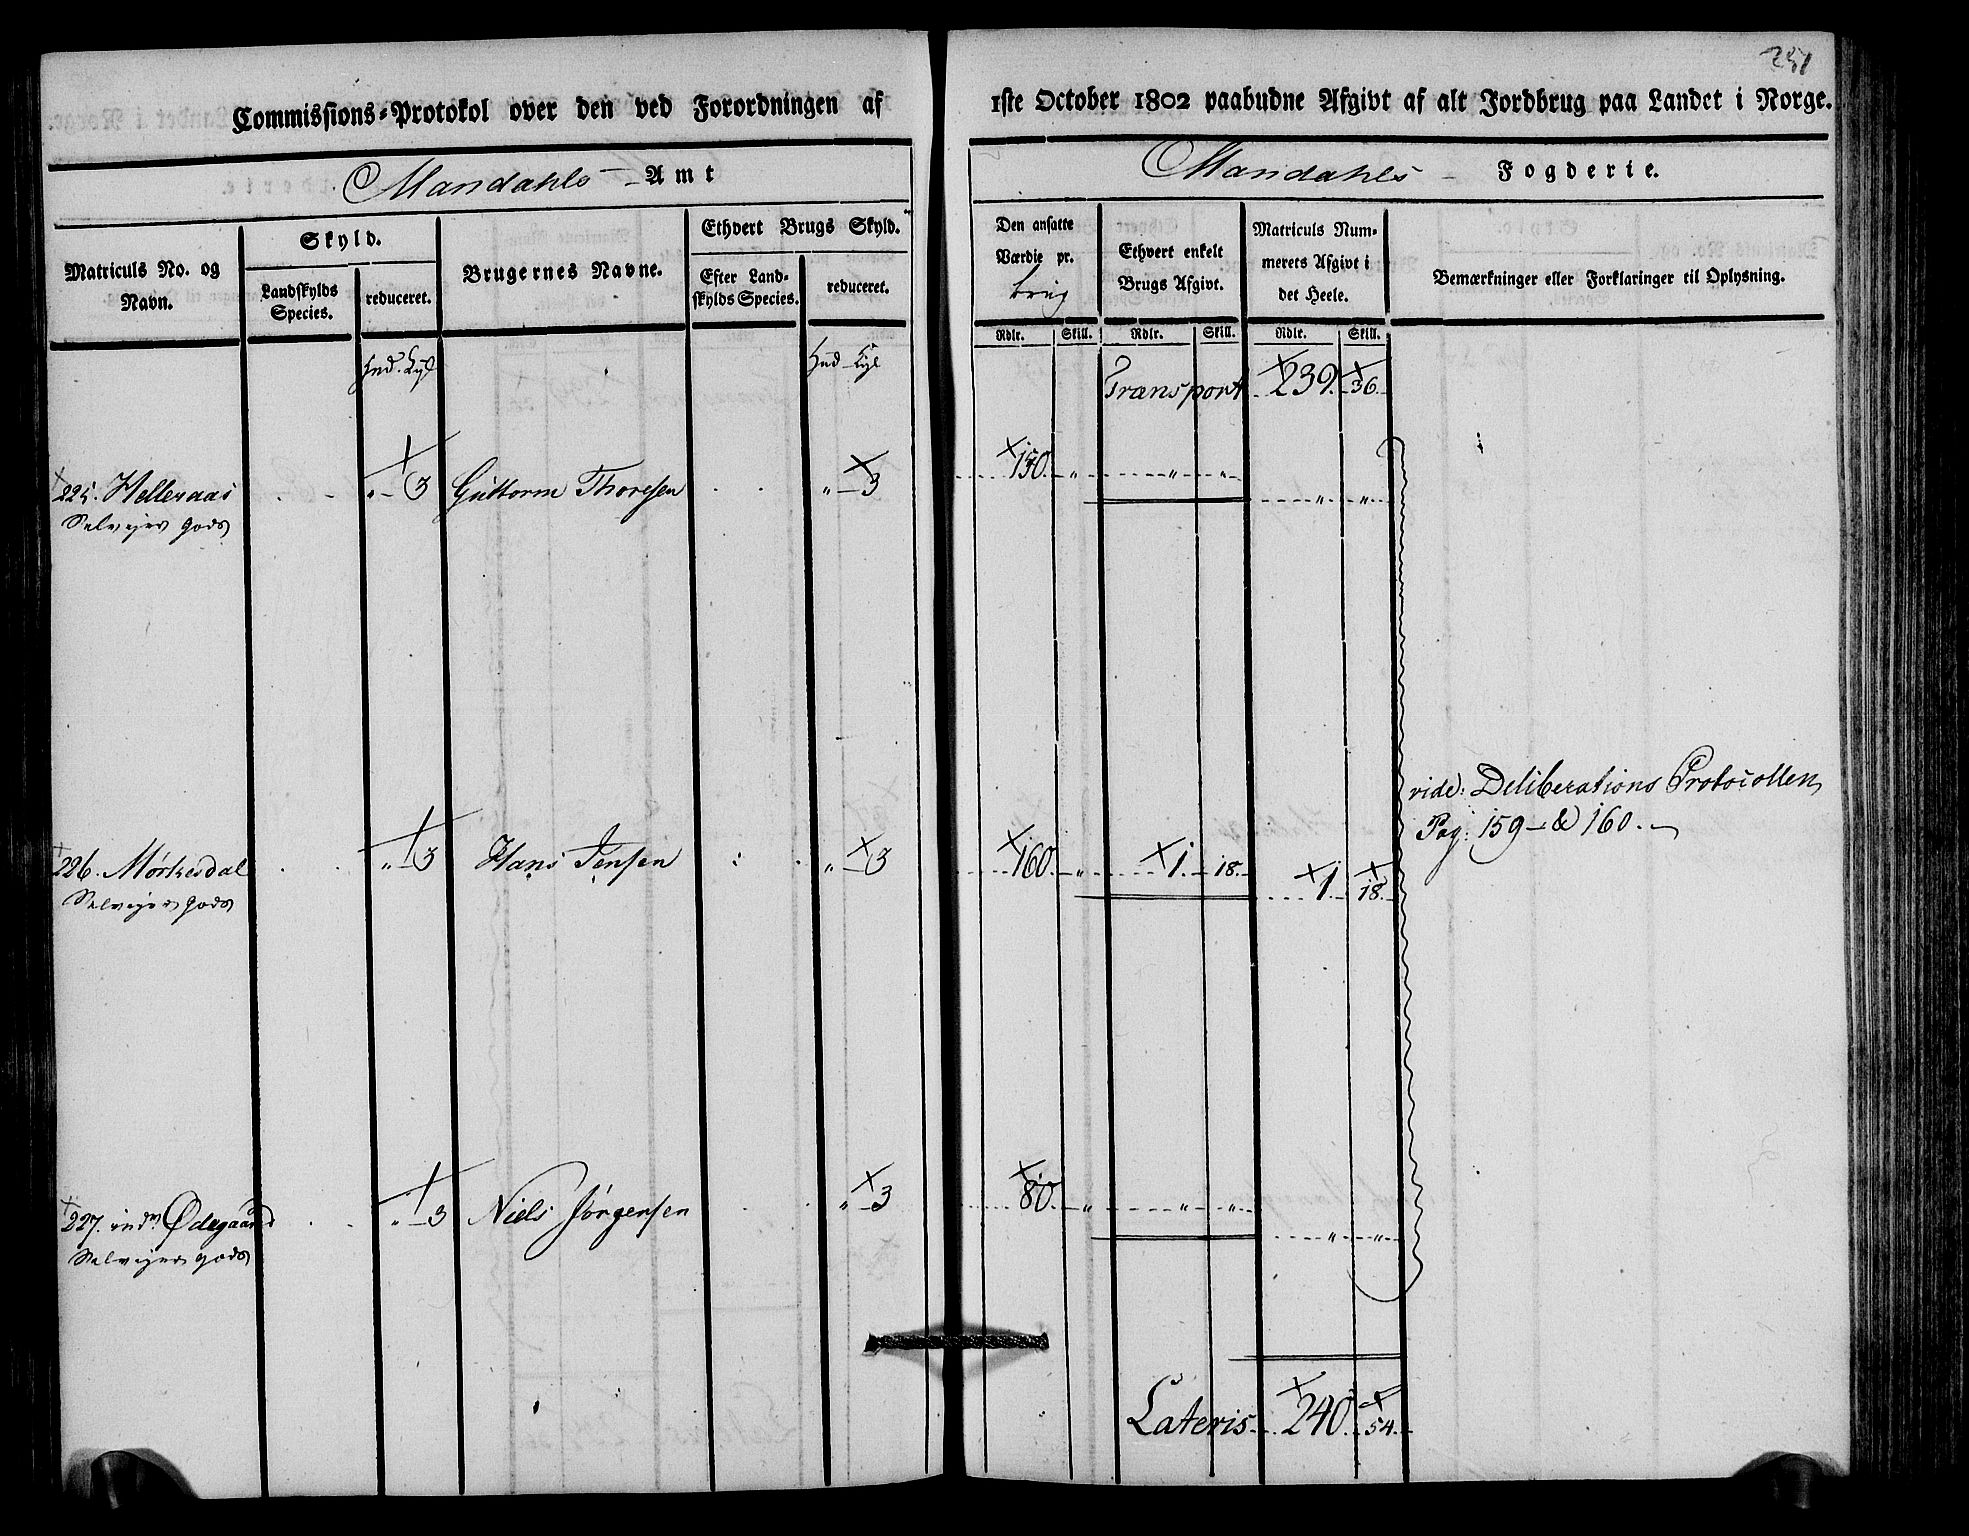 251
Commissions-Protokol over den ved Forordningen af 1ste October 1802 paabudne Afgivt af alt Jordbrug paa Landet i Norge.
Mandahls Amt Mandahls Fogderie.
Matriculs No. og Navn.
Skyld.
Landskylds Species.
reduceret.
Brugernes Navne.
Ethvert Brugs Skyld.
Efter Landskylds Species.
reduceret.
Den ansatte Værdie pr. brug
Ethvert enkelt Brugs Afgivt.
Matriculs Nummerets Afgivt i det Heele.
Bemærkninger eller Forklaringer til Oplysning.
Rdlr. Skill. Rdlr. Skill. Rdlr. Skill.
Hud. Hud
Transport 239. 36.
225. Helleraas " 3 Guttorm Thoresen " 3 150. " " " " "
Selveyer gods
vide: Deliberations Protocollen
Pag: 159 & 160.
226. Mørkesdal " 3 Hans Jensen " 3 160. " 1. 18. 1. 18.
Selveyer gods
227. Ødegaard " 3 Niels Jørgensen " 3 80. " " " " "
Selveyer gods
Lateris 240. 54.